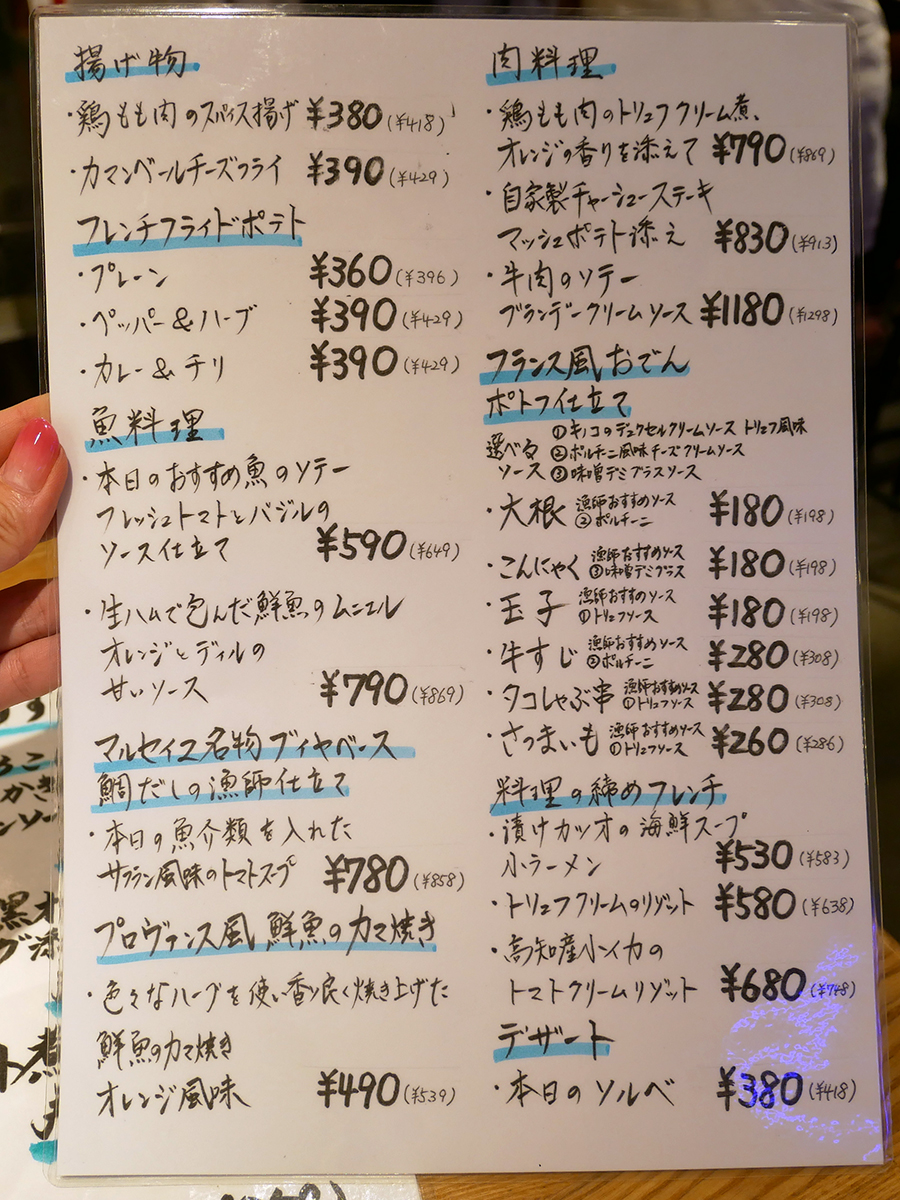 揚げ物
・鶏もも肉のスパイス揚げ ¥380(¥418)
・カマンベールチーズフライ ¥390(¥429)
フレンチフライドポテト
・プレーン ¥360(¥396)
・ペッパー&ハーブ ¥390(¥429)
・カレー&チリ ¥390(¥429)
魚料理
・本日のおすすめ魚のソテー
フレッシュトマトとバジルの
ソース仕立て ¥590(¥649)
・生ハムで包んだ鮮魚のムニエル
オレンジとディルの
甘いソース ¥790(¥869)
マルセイユ名物ブイヤベース
鯛だしの漁師仕立て
・本日の魚介類を入れた
サフラン風味のトマトスープ ¥780(¥858)
プロヴァンス風 鮮魚のカマ焼き
・色々なハーブを使い香り良く焼き上げた
鮮魚のカマ焼き
オレンジ風味 ¥490(¥539)
肉料理
・鶏もも肉のトリュフクリーム煮、
オレンジの香りを添えて ¥790(¥869)
・自家製チャーシューステーキ
マッシュポテト添え ¥830(¥913)
・牛肉のソテー
ブランデークリームソース ¥1180(¥1298)
フランス風おでん
ポトフ仕立て
選べる
ソース
①キノコのデュクセルクリームソース トリュフ風味
②ポルチーニ風味チーズクリームソース
③味噌デミグラスソース
・大根 漁師おすすめソース ②ポルチーニ ¥180(¥198)
・こんにゃく 漁師おすすめソース ③味噌デミグラス ¥180(¥198)
・玉子 漁師おすすめソース ①トリュフソース ¥180(¥198)
・牛すじ 漁師おすすめソース ②ポルチーニ ¥280(¥308)
・タコしゃぶ串 漁師おすすめソース ①トリュフソース ¥280(¥308)
・さつまいも 漁師おすすめソース ①トリュフソース ¥260(¥286)
料理の締めフレンチ
・漬けカツオの海鮮スープ
小ラーメン ¥530(¥583)
・トリュフクリームのリゾット ¥580(¥638)
・高知産小イカの
トマトクリームリゾット ¥680(¥748)
デザート
・本日のソルベ ¥380(¥418)